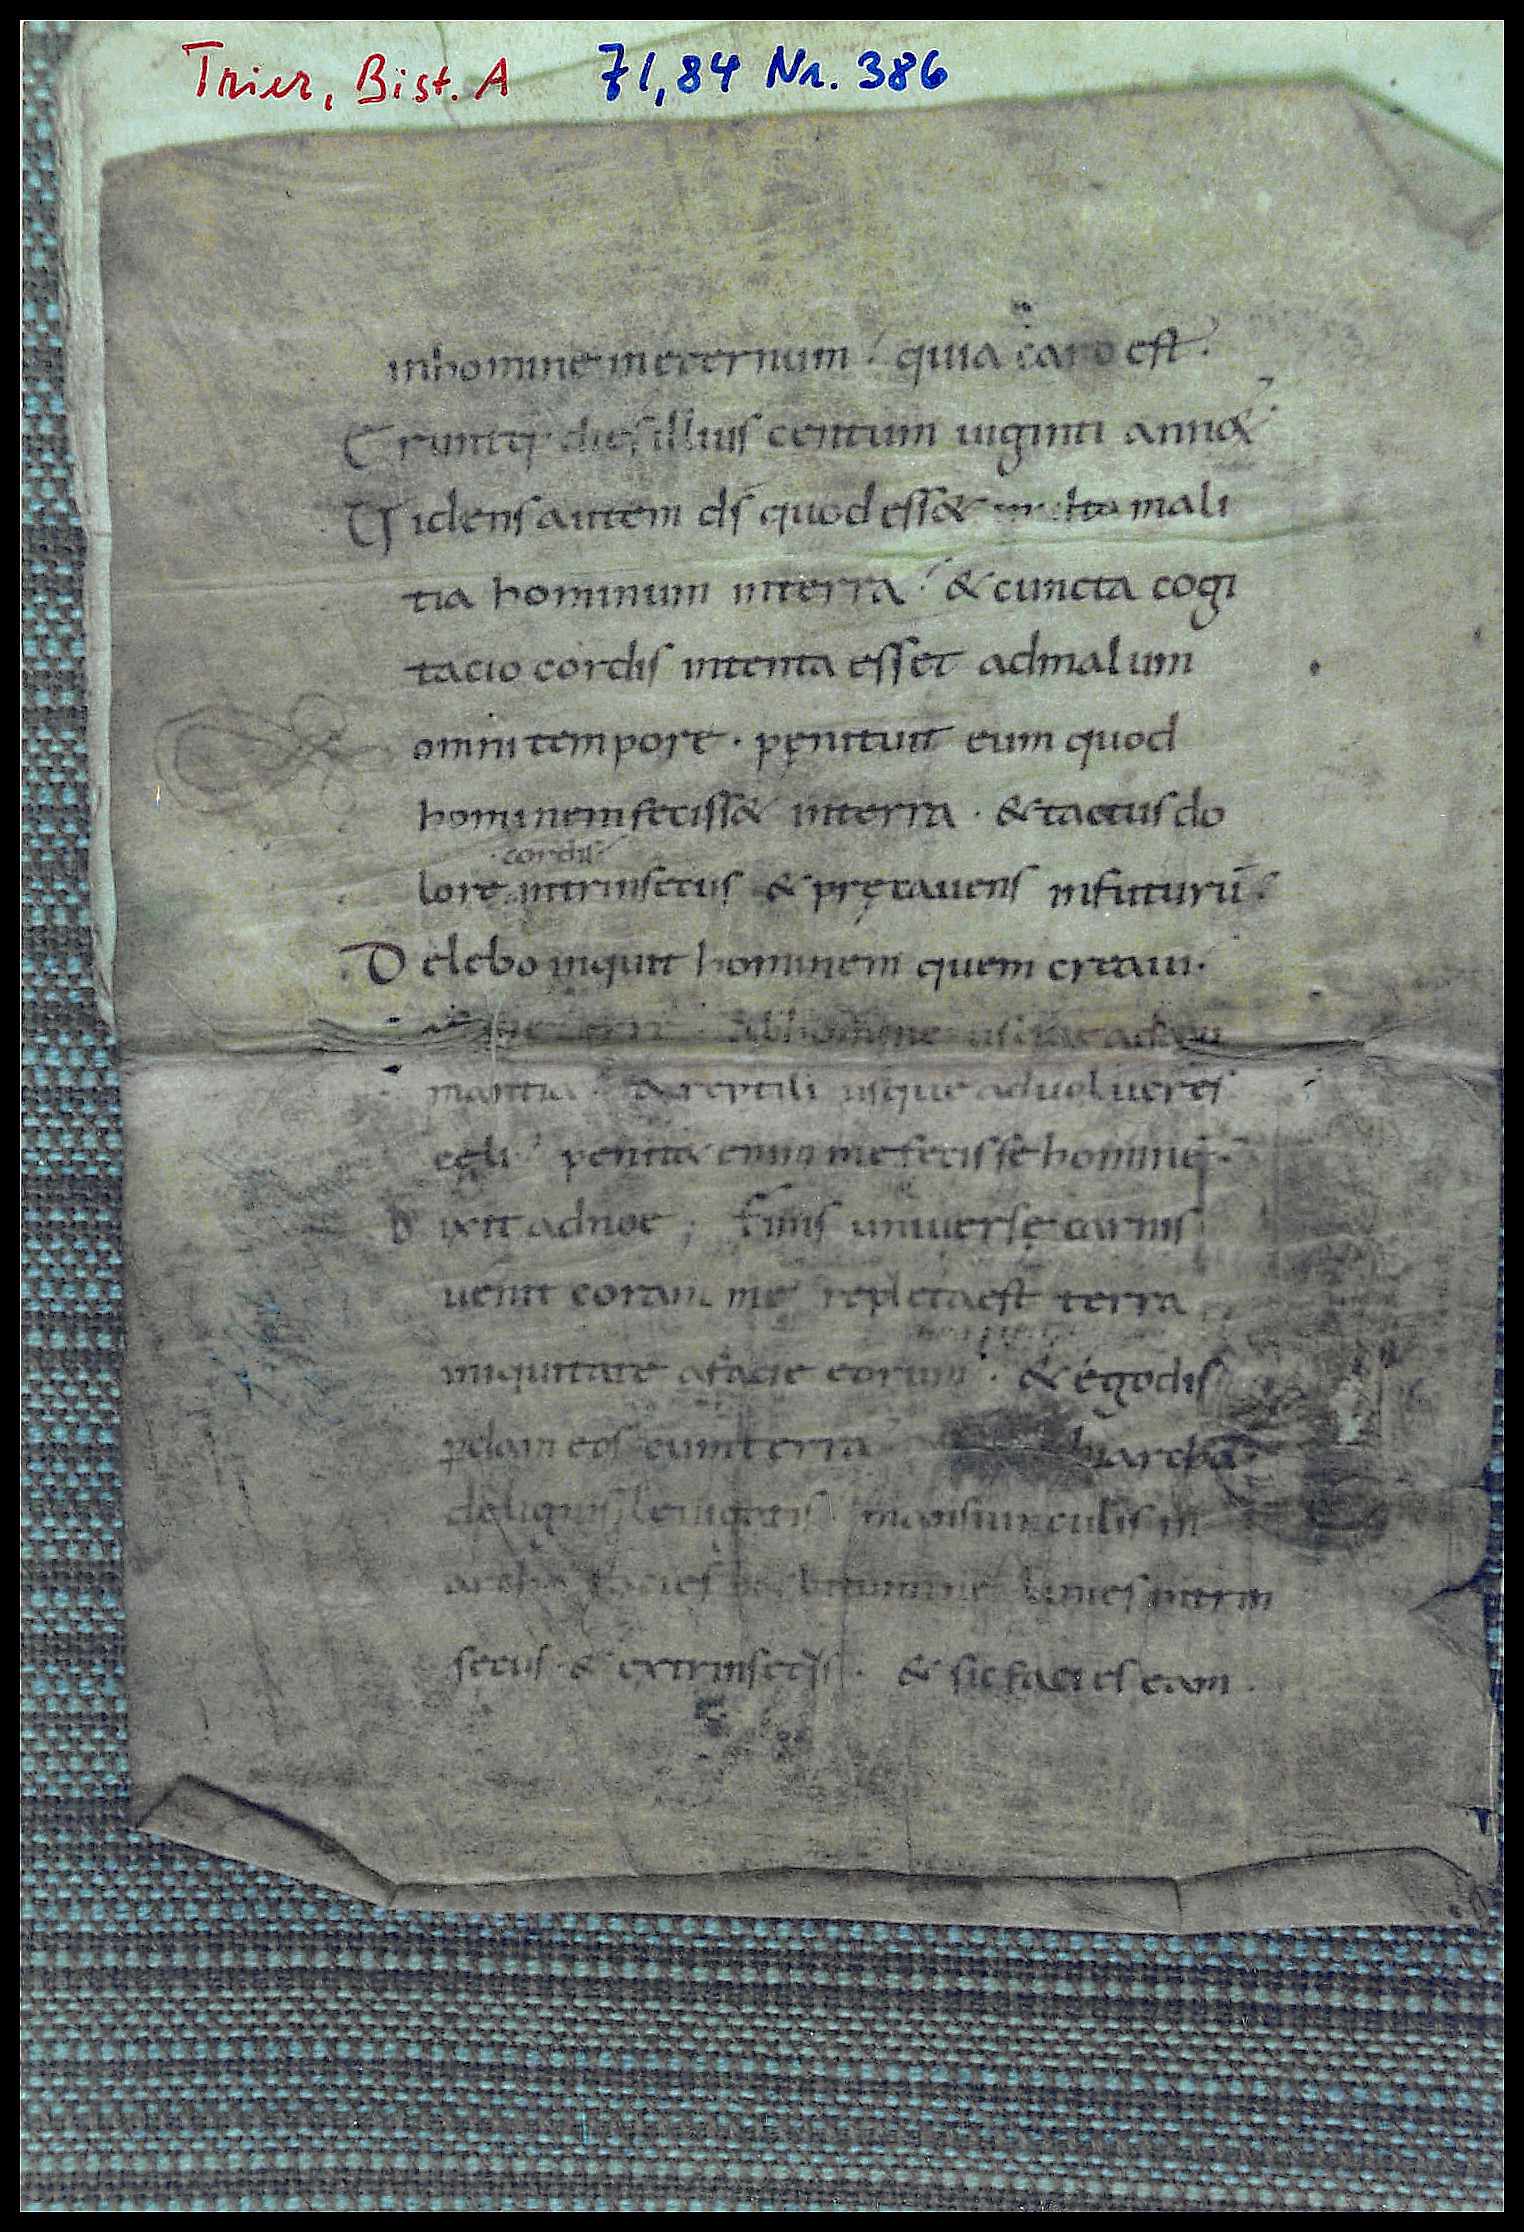 Trier, Bist. A 71,84 Nr. 386
inhomine in eternum quia caro est.
Eruntq; dies illius centum uiginti anno&#
Uidens autem ds quod ess& multa mali
tia hominum interra & cuncta cogi
tacio cordis intenta esset admalum
omni tempore · pęnituit eum quod
hominem feciss& interra · & tactus do
cordis
lore intrinsecus & pręcauens infuturū
Delebo inquit hominem quem creaui·
terrę abhomine usque ad ani
mantia & reptili usque aduolucres
cęli penit& enim me fecisse homine
Dixit adnoe ; finis uniuersę carnis
uenit coram me repleta est terra
iniquitate afacie eorum · & egodis
pdam eos cum terra archa
delignis leuigatis mansiunculis in
archa facies & bitumine linies intrin
secus & extrinsecus · & sic facies eam ·